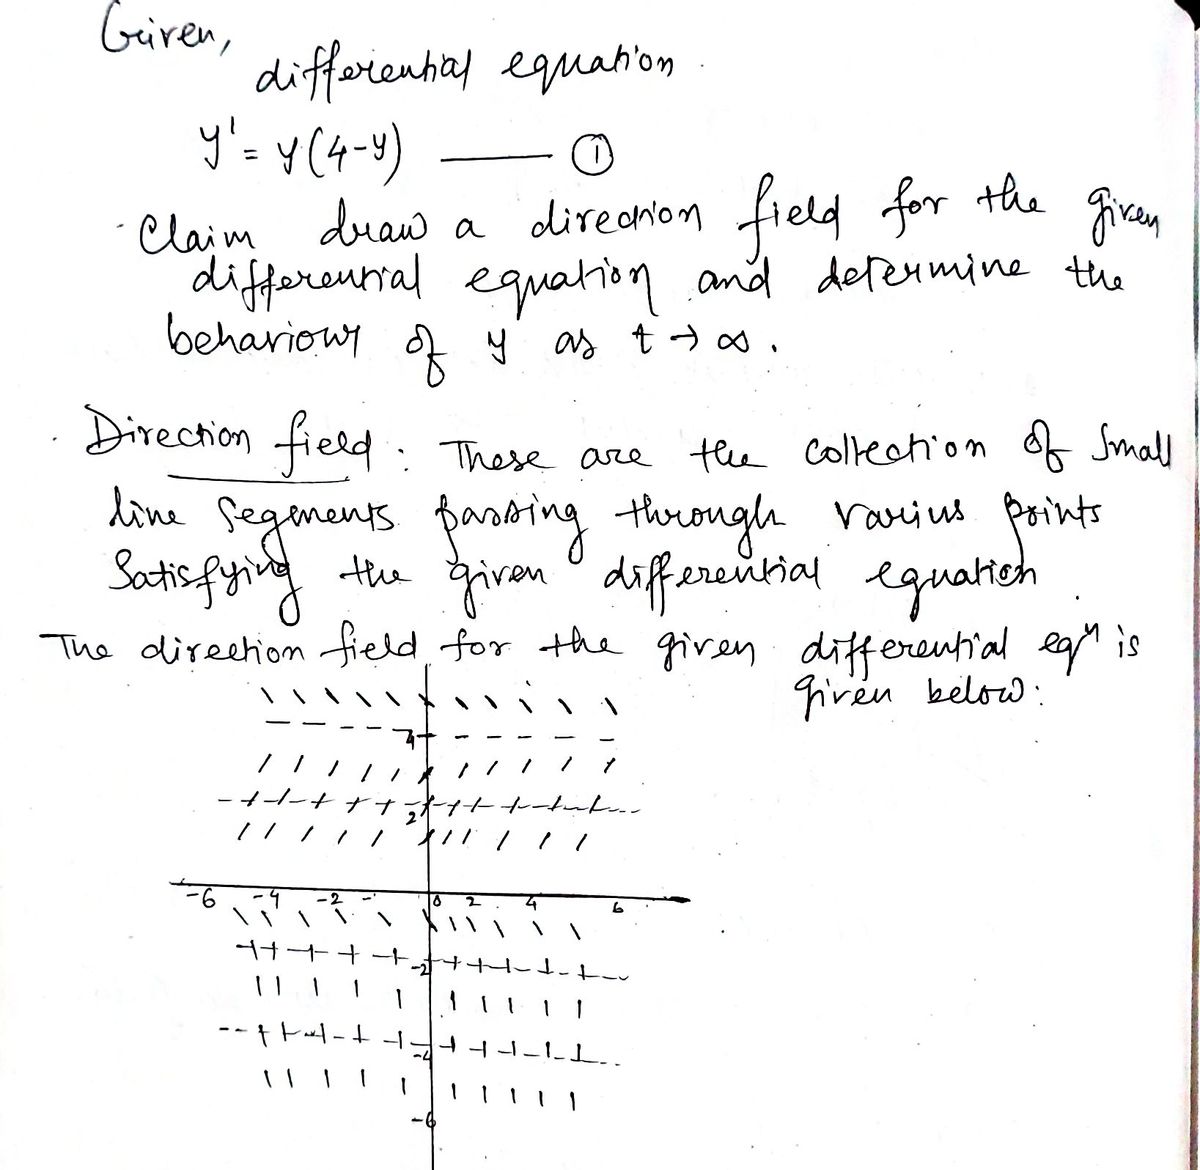 Given,
differential equation.
y' = y(4-y) ——— ①
Claim draw a direction field for the given
differential equation and determine the
behaviour of y as t → ∞.
Direction field: These are the collection of small
line segments passing through varius points
Satisfying the given differential equation.
The direction field for the given differential eqⁿ is
given below:
4
2
-6 -4 -2 0 2 4 6
-2
-4
-6